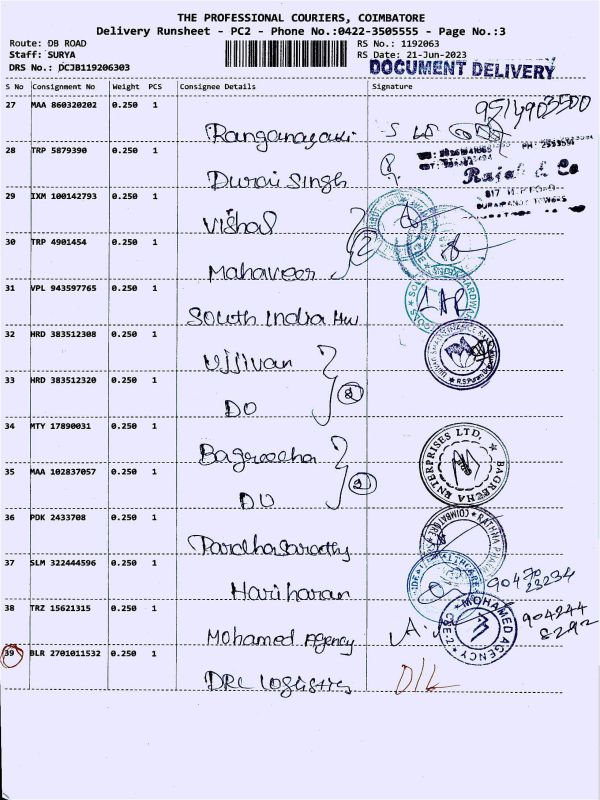 THE PROFESSIONAL COURIERS, COIMBATORE
Delivery Runsheet - PC2 - Phone No.:0422-3505555 - Page No.:3
Route: DB ROAD
Staff: SURYA
DRS No.: DCJB119206303
RS No.: 1192063
RS Date: 21-Jun-2023
DOCUMENT DELIVERY
S No Consignment No Weight PCS Consignee Details Signature
27 MAA 860320202 0.250 1
Ranganayaki
28 TRP 5879390 0.250 1
Durai Singh
29 IXM 100142793 0.250 1
Vishal
30 TRP 4901454 0.250 1
Mahaveer 2
31 VPL 943597765 0.250 1
South India Hw
32 HRD 383512308 0.250 1
Ujjivan
33 HRD 383512320 0.250 1
DO 2
34 MTY 17890031 0.250 1
Bagrecha
35 MAA 102837057 0.250 1
DO 2
BAGRECHA ENTERPRISES LTD.
36 PDK 2433708 0.250 1
Pardhasarathy
37 SLM 322444596 0.250 1
Hariharan
90470
23234
38 TRZ 15621315 0.250 1
Mohamed Agency
MOHAMED AGENCY
CBE-2
904244
8292
39 BLR 2701011532 0.250 1
DRL Logistics
D/L